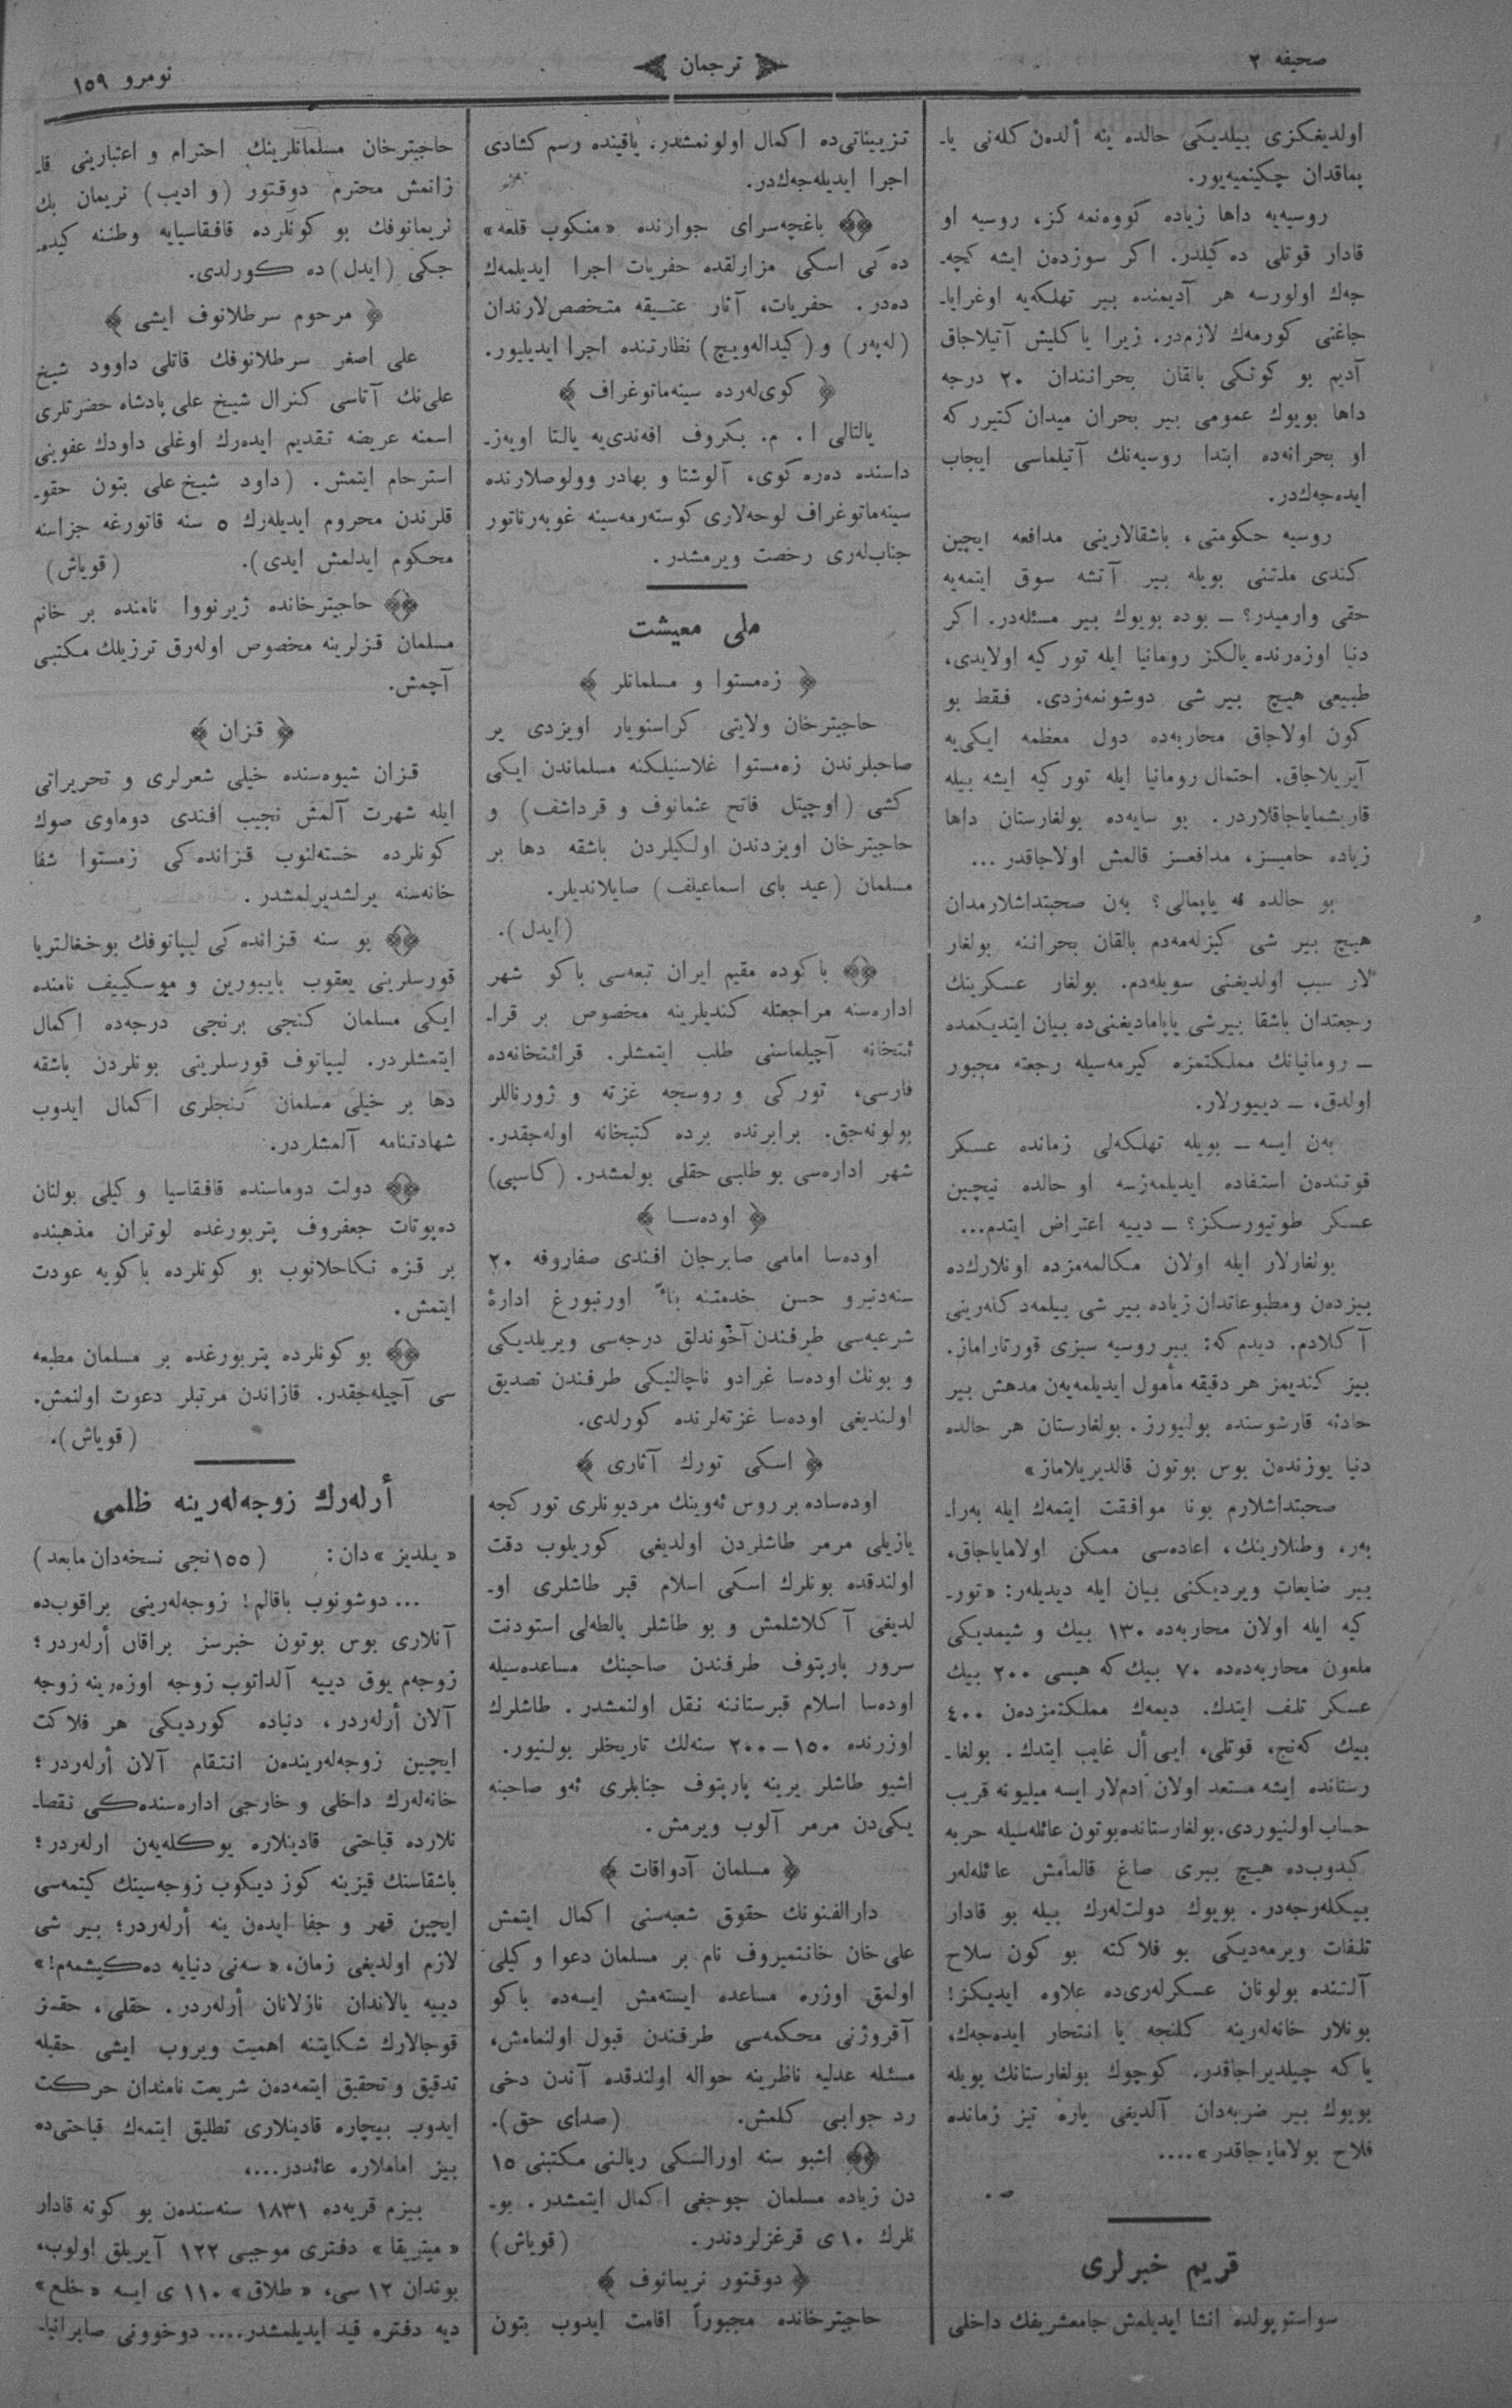 صحیفه ۲
ترجمان
نومرو ۱۵۹
اولدیغکزی بیلدیکی حالده ینه ألدەن کلەنی یا۔
پماقدان چکینمیەیور.
روسیەیه داها زیاده کووەنمه کز، روسیه او
قادار قوتلی دەکیلدر. اکر سوزدەن ایشه کچه۔
جەك اولورسه هر آدیمنده بیر تهلکەیه اوغرایا۔
جاغنی کورمەك لازم‌در. زیرا یاکلیش آتیلاجاق
آدیم بو کونکی بالقان بحرانندان ۲۰ درجه
داها بویوك عمومی بیر بحران میدان کتیررکه
او بحرانەده ابتدا روسیەنك آتیلماسی ایجاب
ایدەجەك‌در.
روسیه حکومتی، باشقالارینی مدافعه ایچین
کندی ملتنی بویله بیر آتشه سوق ایتمەیه
حقی وارمیدر؟ ــ بوده بویوك بیر مسئلەدر. اکر
دنیا اوزەرنده یالکز رومانیا ایله تورکیه اولایدی،
طبیعی هیچ بیر شی دوشونمەزدی. فقط بو
کون اولاجاق محاربەده دول معظمه ایکی‌یه
آیریلاجاق. احتمال رومانیا ایله تورکیه ایشه بیله
قاریشمایاجاقلاردر. بو سایەده بولغارستان داها
زیاده حامیسز، مدافعسز قالمش اولاجاقدر ...
بو حالده نه یاپمالی؟ بەن صحبتداشلارمدان
هیچ بیر شی کیزلەمەدم بالقان بحراننه بولغار
لار سبب اولدیغنی سویلەدم. بولغار عسکرینك
رجعتدان باشقا بیرشی یاپامادیغنی‌ده بیان ایتدیکمده
ــ رومانیانك مملکتمزه کیرمەسیله رجعته مجبور
اولدق، ــ دییورلار.
بەن ایسه ــ بویله تهلکەلی زمانده عسکر
قوتندەن استفاده ایدیلمەزسه او حالده نیچین
عسکر طوتیورسکز؟ ــ دییه اعتراض ایتدم...
بولغارلار ایله اولان مکالمەمزده اونلارك‌ده
بیزدەن ومطبوعاتدان زیاده بیر شی بیلمەدکلەرینی
آکلادم. دیدم که: بیر روسیه سیزی قورتاراماز.
بیز کندیمز هر دقیقه مأمول ایدیلمەیەن مدهش بیر
حادثه قارشوسنده بولنیورز. بولغارستان هر حالده
دنیا یوزندەن بوس بوتون قالدیریلاماز»
صحبتداشلارم بونا موافقت ایتمەك ایله بەرا۔
بەر، وطنلارینك، اعادەسی ممکن اولامایاجاق،
بیر ضایعات ویردیکنی بیان ایله دیدیلەر: «تور۔
کیه ایله اولان محاربەده ۱۳۰ بیك و شیمدیکی
ملعون محاربەدەده ۷۰ بیك که هپسی ۲۰۰ بیك
عسکر تلف ایتدك. دیمەك مملکتمزدەن ٤۰۰
بیك کەنج، قوتلی، ایی أل غایب ایتدك. بولغا۔
رستانده ایشه مستعد اولان آدم‌لار ایسه میلیونه قریب
حساب اولنیوردی. بولغارستانده بوتون عائلەسیله حربه
کیدوب‌ده هیچ بیری صاغ قالمامش عائلەلەر
بیکلەرجەدر. بویوك دولت‌لەرك بیله بو قادار
تلفات ویرمەدیکی بو فلاکته بو کون سلاح
آلتنده بولونان عسکرلەری‌ده علاوه ایدیکز!
بونلار خانەلەرینه کلنجه یا انتحار ایدەجەك،
یا که چیلدیراجاقدر. کوچوك بولغارستانك بویله
بویوك بیر ضربەدان آلدیغی یاره تیز زمانده
فلاح بولامایاجاقدر»....
ص.
قریم خبرلری
سواستوپولده انشا ایدیلمش جامعشریفك داخلی
تزییناتی‌ده اکمال اولونمشدر. یاقینده رسم کشادی
اجرا ایدیلەجەك‌در.
باغچەسرای جوارنده «منکوب قلعه»
دەکی اسکی مزارلقده حفریات اجرا ایدیلمەك
دەدر. حفریات، آثار عتیقه متخصص‌لارندان
(لەپەر) و (کیدالەویچ) نظارتنده اجرا ایدیلیور.
کوی‌لەرده سینەماتوغراف
یالتالی ا. م. بکروف افەندی‌یه یالتا اویەز۔
داسنده دەرەکوی، آلوشتا و بهادر وولوصلارنده
سینەماتوغراف لوحەلاری کوستەرمەسینه غوبەرناتور
جناب‌لەری رخصت ویرمشدر.
ملی معیشت
زەمستوا و مسلمانلر
حاجیترخان ولایتی کراسنویار اویزدی یر
صاحبلرندن زەمستوا غلاسنیلکنه مسلماندن ایکی
کشی (اوچیتل فاتح عثمانوف و قرداشف) و
حاجیترخان اویزدندن اولکیلردن باشقه دها بر
مسلمان (عید بای اسماعیلف) صایلاندیلر.
(ایدل).
باکوده مقیم ایران تبعەسی باکو شهر
ادارەسنه مراجعتله کندیلرینه مخصوص بر قرا۔
ئتخانه آچیلماسنی طلب ایتمشلر. قرائتخانەده
فارسی، تورکی و روسجه غزته و ژورناللر
بولونه‌جق. برابرنده برده کتبخانه اولەجقدر.
شهر ادارەسی بو طلبی حقلی بولمشدر. (کاسپی)
اودەسا
اودەسا امامی صابرجان افندی صفاروفه ۲۰
سنەدنبرو حسن خدمتنه بناءً اورنبورغ ادارۀ
شرعیەسی طرفندن آخوندلق درجەسی ویریلدیکی
و بونك اودەسا غرادو ناچالنیکی طرفندن تصدیق
اولندیغی اودەسا غزتەلرنده کورلدی.
اسکی تورك آثاری
اودەساده بر روس ئەوینك مردیونلری تورکجه
یازیلی مرمر طاشلردن اولدیغی کوریلوب دقت
اولندقده بونلرك اسکی اسلام قبر طاشلری او۔
لدیغی آکلاشلمش و بو طاشلر یالطەلی استودنت
سرور پاریتوف طرفندن صاحبنك مساعدەسیله
اودەسا اسلام قبرستاننه نقل اولنمشدر. طاشلرك
اوزرنده ۱۵۰ــ۲۰۰ سنەلك تاریخلر بولنیور.
اشبو طاشلر یرینه پاریتوف جنابلری ئەو صاحبنه
یکی‌دن مرمر آلوب ویرمش.
مسلمان آدواقات
دارالفنونك حقوق شعبەسنی اکمال ایتمش
علی خان خانتمیروف نام بر مسلمان دعوا وکیلی
اولمق اوزره مساعده ایستەمش ایسەده باکو
آقروژنی محکمەسی طرفندن قبول اولنمامش،
مسئله عدلیه ناظرینه حواله اولندقده آندن دخی
رد جوابی کلمش. (صدای حق).
اشبو سنه اورالسکی ریالنی مکتبنی ۱۵
دن زیاده مسلمان چوجغی اکمال ایتمشدر. بو۔
نلرك ۱۰ی قرغزلردندر. (قویاش)
دوقتور نریمانوف
حاجیترخانده مجبوراً اقامت ایدوب بتون
حاجیترخان مسلمانلرینك احترام و اعتبارینی قا۔
زانمش محترم دوقتور (و ادیب) نریمان بك
نریمانوفك بو کونلرده قافقاسیایه وطننه کیده۔
جکی (ایدل)ده کورلدی.
مرحوم سرطلانوف ایشی
علی اصغر سرطلانوفك قاتلی داوود شیخ
علی‌نك آتاسی کنرال شیخ علی پادشاه حضرتلری
اسمنه عریضه تقدیم ایدەرك اوغلی داودك عفوینی
استرحام ایتمش. (داود شیخ علی بتون حقو۔
قلرندن محروم ایدیلەرك ۵ سنه قاتورغه جزاسنه
محکوم ایدلمش ایدی). (قویاش)
حاجیترخانده ژیرنووا نامنده بر خانم
مسلمان قزلرینه مخصوص اولەرق ترزیلك مکتبی
آچمش.
قزان
قزان شیوەسنده خیلی شعرلری و تحریراتی
ایله شهرت آلمش نجیب افندی دوماوی صوك
کونلرده خستەلنوب قزاندەکی زمستوا شفا
خانەسنه یرلشدیرلمشدر.
بو سنه قزاندەکی لیپاتوفك بوخغالتریا
قورسلرینی یعقوب بایبورین و موسکییف نامنده
ایکی مسلمان کنجی برنجی درجەده اکمال
ایتمشلردر. لیپاتوف قورسلرینی بونلردن باشقه
دها بر خیلی مسلمان کنجلری اکمال ایدوب
شهادتنامه آلمشلردر.
دولت دوماسنده قافقاسیا وکیلی بولنان
دەپوتات جعفروف پتربورغده لوتران مذهبنده
بر قزه نکاحلانوب بو کونلرده باکویه عودت
ایتمش.
بو کونلرده پتربورغده بر مسلمان مطبعه
سی آچیلەجقدر. قازاندن مرتبلر دعوت اولنمش.
(قویاش).
أرلەرك زوجەلەرینه ظلمی
«یلدیز»دان: (۱۵۵نجی نسخەدان مابعد)
... دوشونوب باقالم! زوجەلەرینی براقوب‌ده
آنلاری بوس بوتون خبرسز براقان أرلەردر؛
زوجەم یوق دییه آلداتوب زوجه اوزەرینه زوجه
آلان أرلەردر، دنیاده کوردیکی هر فلاکت
ایچین زوجەلەریندەن انتقام آلان أرلەردر؛
خانەلەرك داخلی و خارجی ادارەسندەکی نقصا۔
نلارده قباحتی قادینلاره یوکلەیەن ارلەردر؛
باشقاسنك قیزینه کوز دیکوب زوجەسینك کیتمەسی
ایچین قهر و جفا ایدەن ینه أرلەردر؛ بیر شی
لازم اولدیغی زمان، «سەنی دنیایه دەکیشمەم!»
دییه یالاندان نازلانان أرلەردر. حقلی، حقسز
قوجالارك شکایتنه اهمیت ویروب ایشی حقیله
تدقیق و تحقیق ایتمەدەن شریعت نامندان حرکت
ایدوب بیچاره قادینلاری تطلیق ایتمەك قباحتی‌ده
بیز امام‌لاره عائددر...،
بیزم قریەده ۱۸۳۱ سنەسندەن بو کونه قادار
«میتریقا» دفتری موجبی ۱۲۲ آیریلق اولوب،
بوندان ۱۲ سی، «طلاق» ۱۱۰ی ایسه «خلع»
دیه دفتره قید ایدیلمشدر.... دوخوونی صابرانیا۔